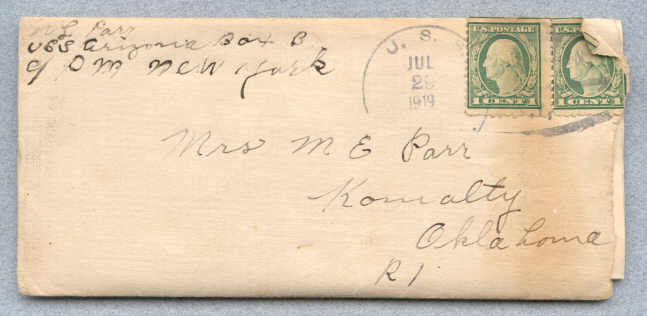 N L Parr
USS Arizona Box B
c/o P M New York
U. S.
JUL
28
1919
U.S. POSTAGE
1 CENT 1
U.S. POSTAGE
1 CENT 1
Mrs M E Parr
Komalty
Oklahoma
R 1